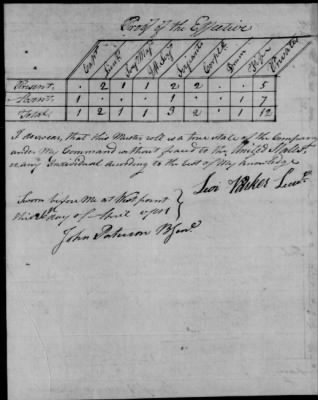 Proof of the Effective
Capt Lieut Surg Majr Serjeants Corpls Drum Fifer Privates
Present . 2 1 1 2 2 . . 5
Absent 1 . . . 1 . . 1 7
Total 1 2 1 1 3 2 . 1 12
I do swear, that this Muster roll is a true state of the Company
under My Command without fraud to the United States
or any Individual according to the best of My knowledge
Levi Parker Lieut
Sworn before Me at West point
this day of April 1781
John Paterson B Genl